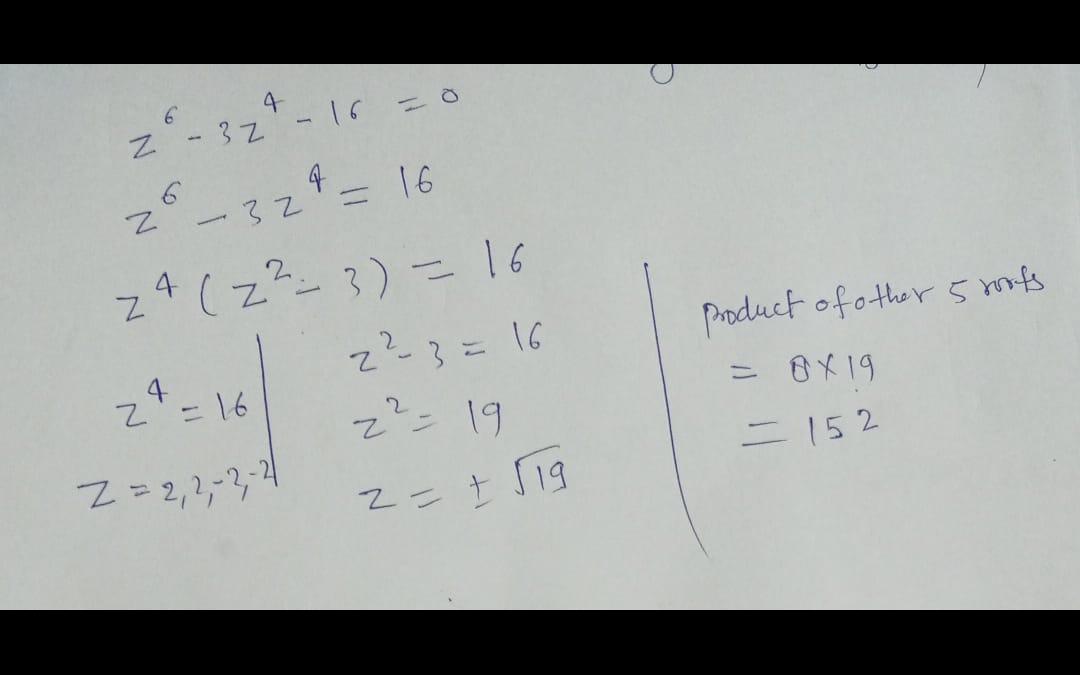 z⁶ - 3z⁴ - 16 = 0
z⁶ - 3z⁴ = 16
z⁴ (z² - 3) = 16
z⁴ = 16
z = 2, 2, -2, -2
z² - 3 = 16
z² = 19
z = ± √19
product of other 5 roots
= 8 × 19
= 152